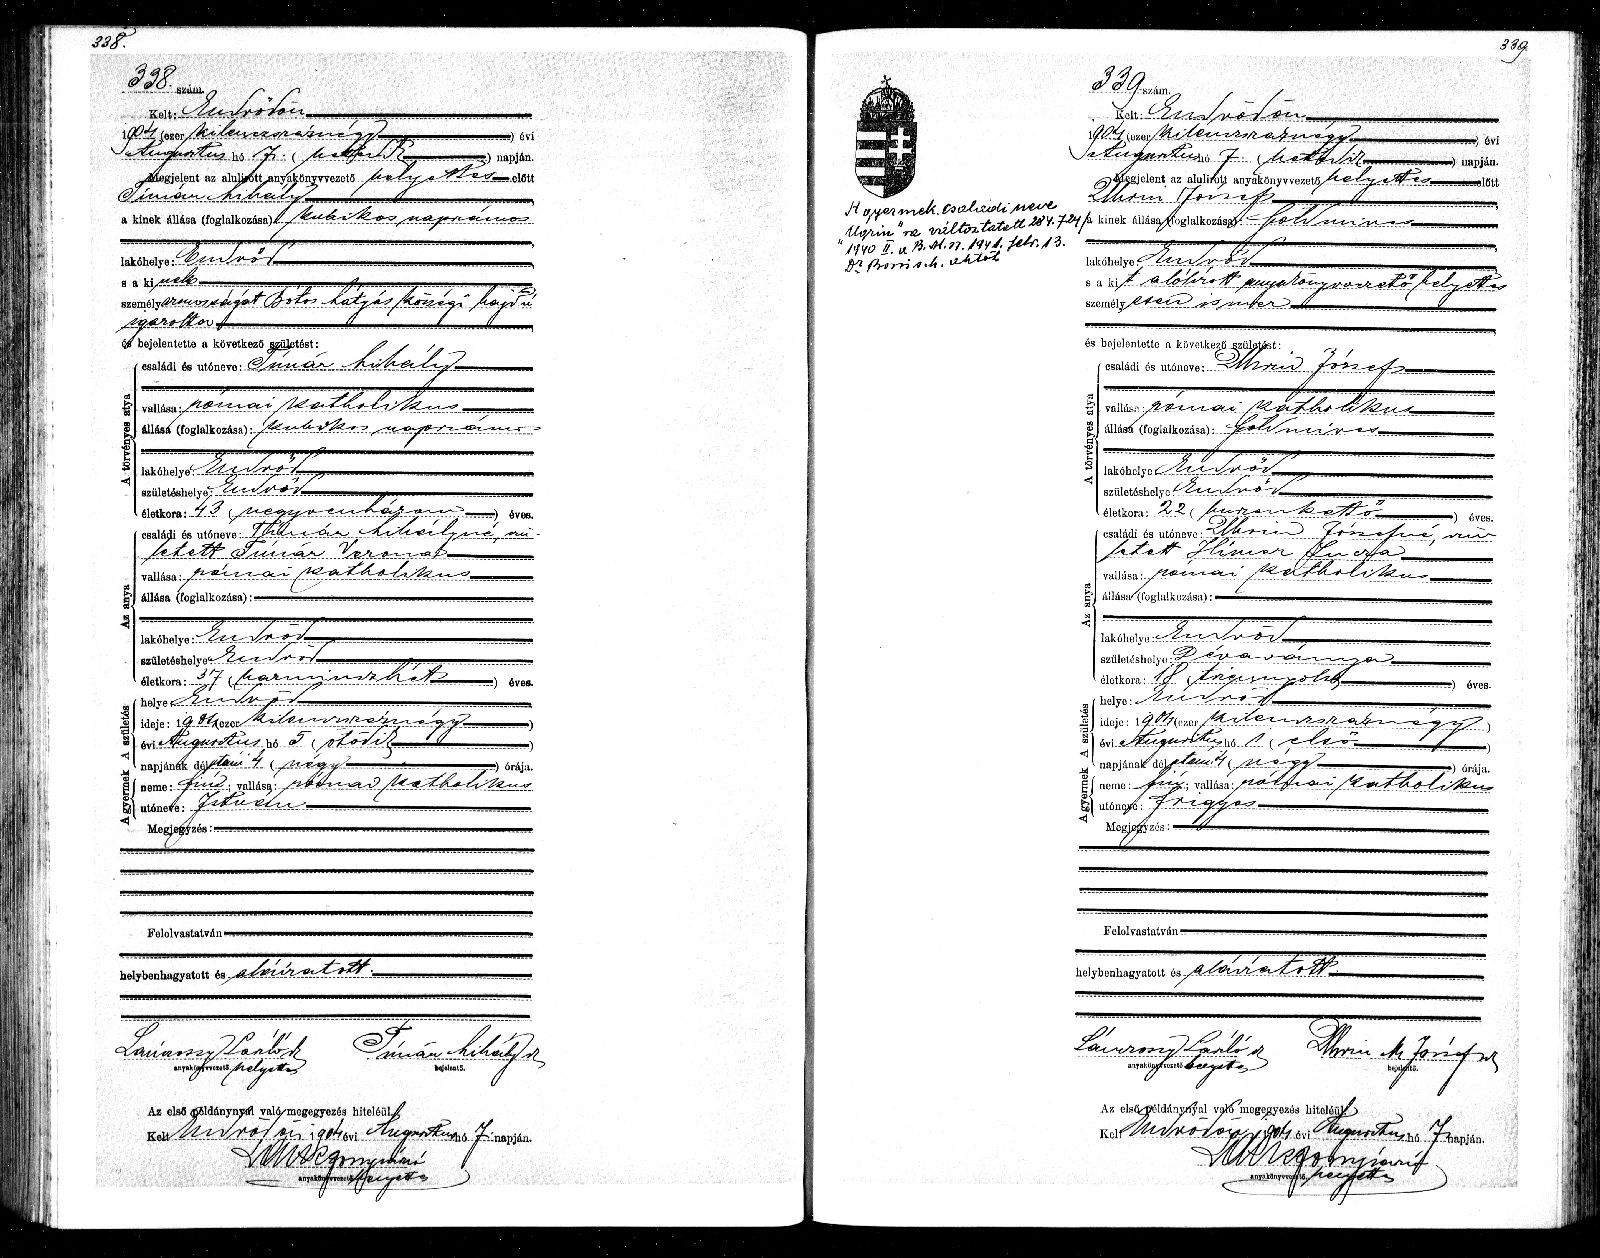 338.
338. szám.
Kelt: Endrődön
1904 (ezer kilenczszáznégy) évi
Augusztus hó 7. (hetedik) napján.
Megjelent az alulírott anyakönyvvezető helyettes előtt
Tímár Mihály
a kinek állása (foglalkozása): kubikos napszámos
lakóhelye: Endrőd
s a ki nek
személyazonosságát Bótos Mátyás községi hajdú
igazolta
és bejelentette a következő születést:
A törvényes atya
családi és utóneve: Tímár Mihály
vallása: római katholikus
állása (foglalkozása): kubikos napszámos
lakóhelye: Endrőd
születéshelye: Endrőd
életkora: 43 (negyvenhárom) éves.
Az anya
családi és utóneve: Tímár Mihályné, szü-
letett Tímár Verona
vallása: római katholikus
állása (foglalkozása):
lakóhelye: Endrőd
születéshelye: Endrőd
életkora: 37 (harminczhét) éves.
A születés
helye: Endrőd
ideje: 1904 (ezer kilenczszáznégy)
évi Augusztus hó 5 (ötödik)
napjának délutáni 4 (négy) órája.
A gyermek
neme: fiú; vallása: római katholikus
utóneve: István
Megjegyzés:
Felolvastatván
helybenhagyatott és aláiratott.
László
anyakönyvvezető helyettes
Tímár Mihály
bejelentő.
Az első példánynyal való megegyezés hiteléül
Kelt Endrődön 1904 évi Augusztus hó 7. napján.
anyakönyvvezető helyettes
339
A gyermek családi neve
"Ugrin"ra változtatott 284.724/
1940 II. a B. M. n. 1941. febr. 13.
339 szám.
Kelt: Endrődön
1904 (ezer kilenczszáznégy) évi
Augusztus hó 7. (hetedik) napján.
Megjelent az alulírott anyakönyvvezető helyettes előtt
József
a kinek állása (foglalkozása): földmíves
lakóhelye: Endrőd
s a ki t alólírott anyakönyvvezető helyettes
személyesen ismer
és bejelentette a következő születést:
A törvényes atya
családi és utóneve: József
vallása: római katholikus
állása (foglalkozása): földmíves
lakóhelye: Endrőd
születéshelye: Endrőd
életkora: 22 (huszonkettő) éves.
Az anya
családi és utóneve: Józsefné, szü-
letett
vallása: római katholikus
állása (foglalkozása):
lakóhelye: Endrőd
születéshelye: Dévaványa
életkora: 18 (tizennyolcz) éves.
A születés
helye: Endrőd
ideje: 1904 (ezer kilenczszáznégy)
évi Augusztus hó 1 (első)
napjának délutáni 4 (négy) órája.
A gyermek
neme: fiú; vallása: római katholikus
utóneve: Frigyes
Megjegyzés:
Felolvastatván
helybenhagyatott és aláiratott
László
anyakönyvvezető helyettes
József
bejelentő.
Az első példánynyal való megegyezés hiteléül
Kelt Endrődön 1904 évi Augusztus hó 7 napján.
anyakönyvvezető helyettes